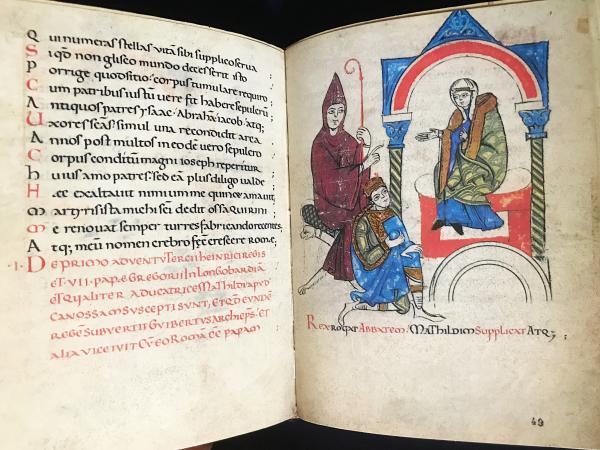 Qui numeras stellas vitā sibi supplico serva:
Si qđ non glisceo mundo decesserit isto
Porrige quod sitio corpus tumulare requiro:
Cum patribus iustū vere fit habere sepulcrū:
Antiquos patres ysaac Abrahā iacob atq;
Uxores scas simul una recondidit arca
Annos post multos in eode vero sepulcro
Corpus conditū magni ioseph reperitur:
huius amo patres sed eā plus diligo valde
Hec exaltavit nimiumme amavit:
martyris ista michi sci dedit ossa quirini
me renovat semper turres fabricando recentes:
Atq; meū nomen crebro crescere Rome,
·I· De primo adventu Tercii heinrici regis
et VII pap̄e Gregorii in Longobardiā
et qualiter a ducatrice Mathildi apud
Canossam suscepti sunt, et qđ eundē
regē subvertit Guibertus archieps, et
alia vice ivit cū eo Romā cc̄ papam
Rex rogat Abbatem. Mathildim supplicat Atq;;
49